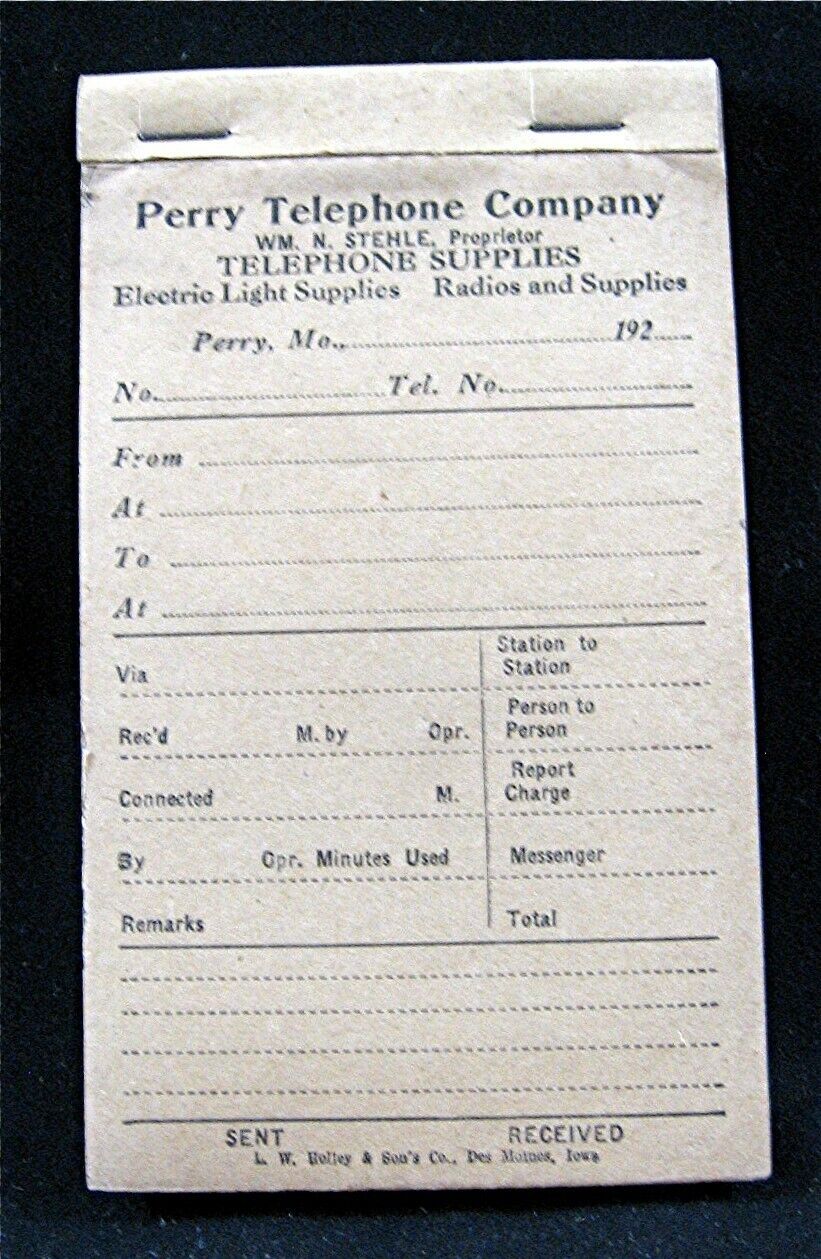 Perry Telephone Company
WM. N. STEHLE, Proprietor
TELEPHONE SUPPLIES
Electric Light Supplies Radios and Supplies
Perry, Mo., 192
No. Tel. No.
From
At
To
At
Via
Station to Station
Rec'd M. by Opr.
Person to Person
Connected M.
Report Charge
By Opr. Minutes Used
Messenger
Remarks
Total
SENT RECEIVED
L. W. Holley & Son's Co., Des Moines, Iowa